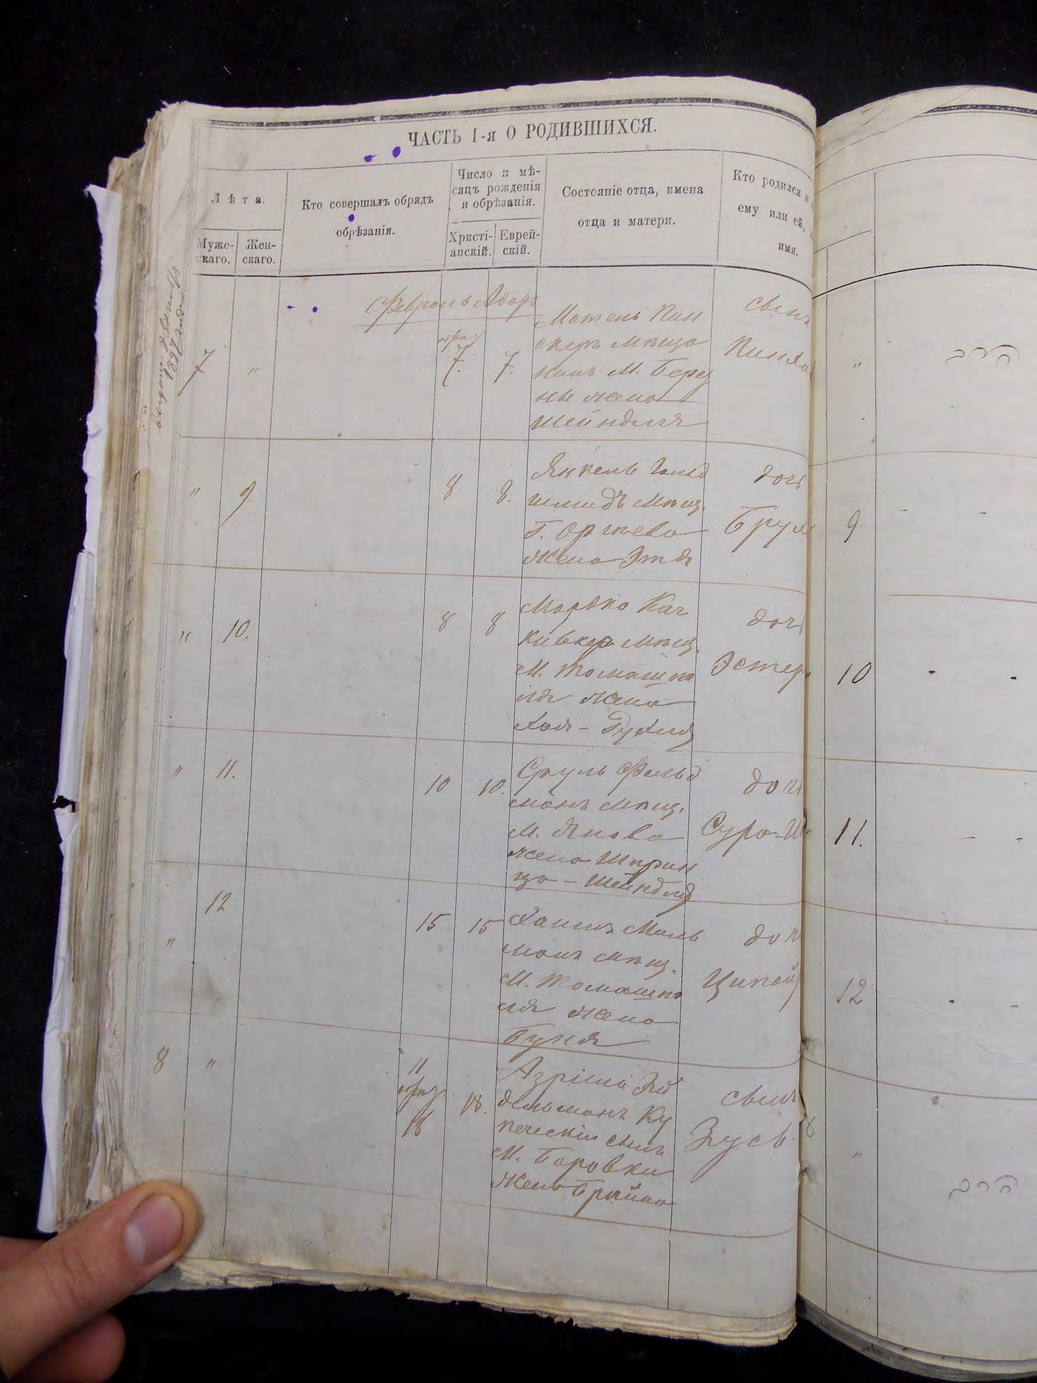 ЧАСТЬ I-я О РОДИВШИХСЯ.
Лѣта.
Муже-
скаго.
Жен-
скаго.
Кто совершалъ обрядъ
обрѣзанія.
Число и мѣ-
сяцъ рожденія
и обрѣзанія.
Христі-
анскій.
Еврей-
скій.
Состояніе отца, имена
отца и матери.
Кто родился и
ему или ей,
имя.
1897 года
Февраль Адаръ
7 " 7. 7.
Мотель Пин
скеръ мѣща
нинъ М. Берез
ны жена
Шейндля
сынъ
" 9 8 8.
Янкель Гольд
шмидъ мѣщ.
Г. Оргѣева
жена Этя
дочь
" 10. 8 8
Мордко Кач
кивкеръ мѣщ.
М. Томашпо
ля жена
Хая-Рухля
дочь
Эстер
" 11. 10 10.
Сруль Фельд
манъ мѣщ.
М. Янова
жена Шприн
ца-Шейндля
дочь
Суро-
" 12 15 15
Хаимъ Мель
манъ мѣщ.
М. Томашпо
ля жена
Буня
дочь
8 " 11 18 18.
Азріилъ Эй
дельманъ Ку
печескій сынъ
М. Боровки
жена Брайна
сынъ
Зусь
"
9 - -
10 - -
11. - -
12 - -
8 "